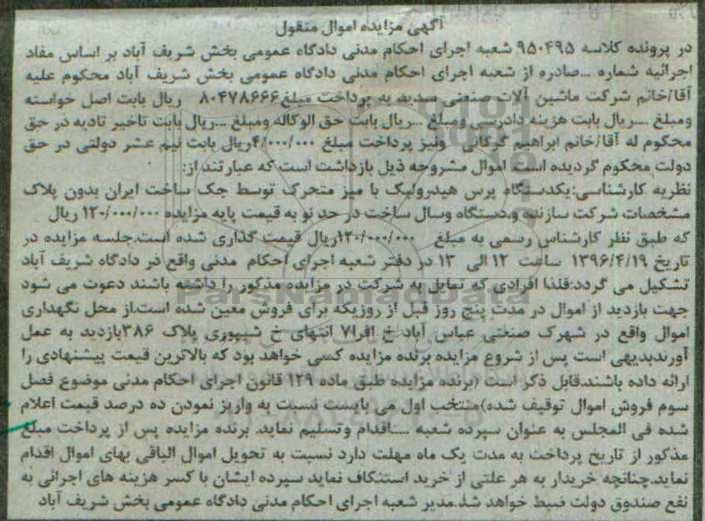 آگهی مزایده اموال منقول
در پرونده کلاسه ۹۵۰۴۹۵ شعبه اجرای احکام مدنی دادگاه عمومی بخش شریف آباد بر اساس مفاد
اجرائیه شماره ...صادره از شعبه اجرای احکام مدنی دادگاه عمومی بخش شریف آباد محکوم علیه
آقا/خانم شرکت ماشین آلات صنعتی سدید به پرداخت مبلغ ۸۰۴۷۸۶۶۶ ریال بابت اصل خواسته
ومبلغ ...ریال بابت هزینه دادرسی ومبلغ ...ریال بابت حق الوکاله ومبلغ ...ریال بابت تاخیر تادیه در حق
محکوم له آقا/خانم ابراهیم گرگانی ونیز پرداخت مبلغ ۴/۰۰۰/۰۰۰ریال بابت نیم عشر دولتی در حق
دولت محکوم گردیده است اموال مشروحه ذیل بازداشت است که عبارتند از:
نظریه کارشناسی:یکدستگاه پرس هیدرولیک با میز متحرک توسط جک ساخت ایران بدون پلاک
مشخصات شرکت سازنده ودستگاه وسال ساخت در حد نو به قیمت پایه مزایده ۱۲۰/۰۰۰/۰۰۰ ریال
که طبق نظر کارشناس رسمی به مبلغ ۱۲۰/۰۰۰/۰۰۰ریال قیمت گذاری شده است.جلسه مزایده در
تاریخ ۱۳۹۶/۴/۱۹ ساعت ۱۲ الی ۱۳ در دفتر شعبه اجرای احکام مدنی واقع در دادگاه شریف آباد
تشکیل می گردد:فلذا افرادی که تمایل به شرکت در مزایده مذکور را داشته باشند دعوت می شود
جهت بازدید از اموال در مدت پنج روز قبل از روزیکه برای فروش معین شده است.از محل نگهداری
اموال واقع در شهرک صنعتی عباس آباد خ افرا۷ انتهای خ شیپوری پلاک ۳۸۶بازدید به عمل
آورندبدیهی است پس از شروع مزایده برنده مزایده کسی خواهد بود که بالاترین قیمت پیشنهادی را
ارائه داده باشند.قابل ذکر است (برنده مزایده طبق ماده ۱۲۹ قانون اجرای احکام مدنی موضوع فصل
سوم فروش اموال توقیف شده)منتخب اول می بایست نسبت به واریز نمودن ده درصد قیمت اعلام
شده فی المجلس به عنوان سپرده شعبه ...اقدام وتسلیم نماید. برنده مزایده پس از پرداخت مبلغ
مذکور از تاریخ پرداخت به مدت یک ماه مهلت دارد نسبت به تحویل اموال الباقی بهای اموال اقدام
نماید.چنانچه خریدار به هر علتی از خرید استنکاف نماید سپرده ایشان با کسر هزینه های اجرائی به
نفع صندوق دولت ضبط خواهد شد.مدیر شعبه اجرای احکام مدنی دادگاه عمومی بخش شریف آباد
ParsNamadData